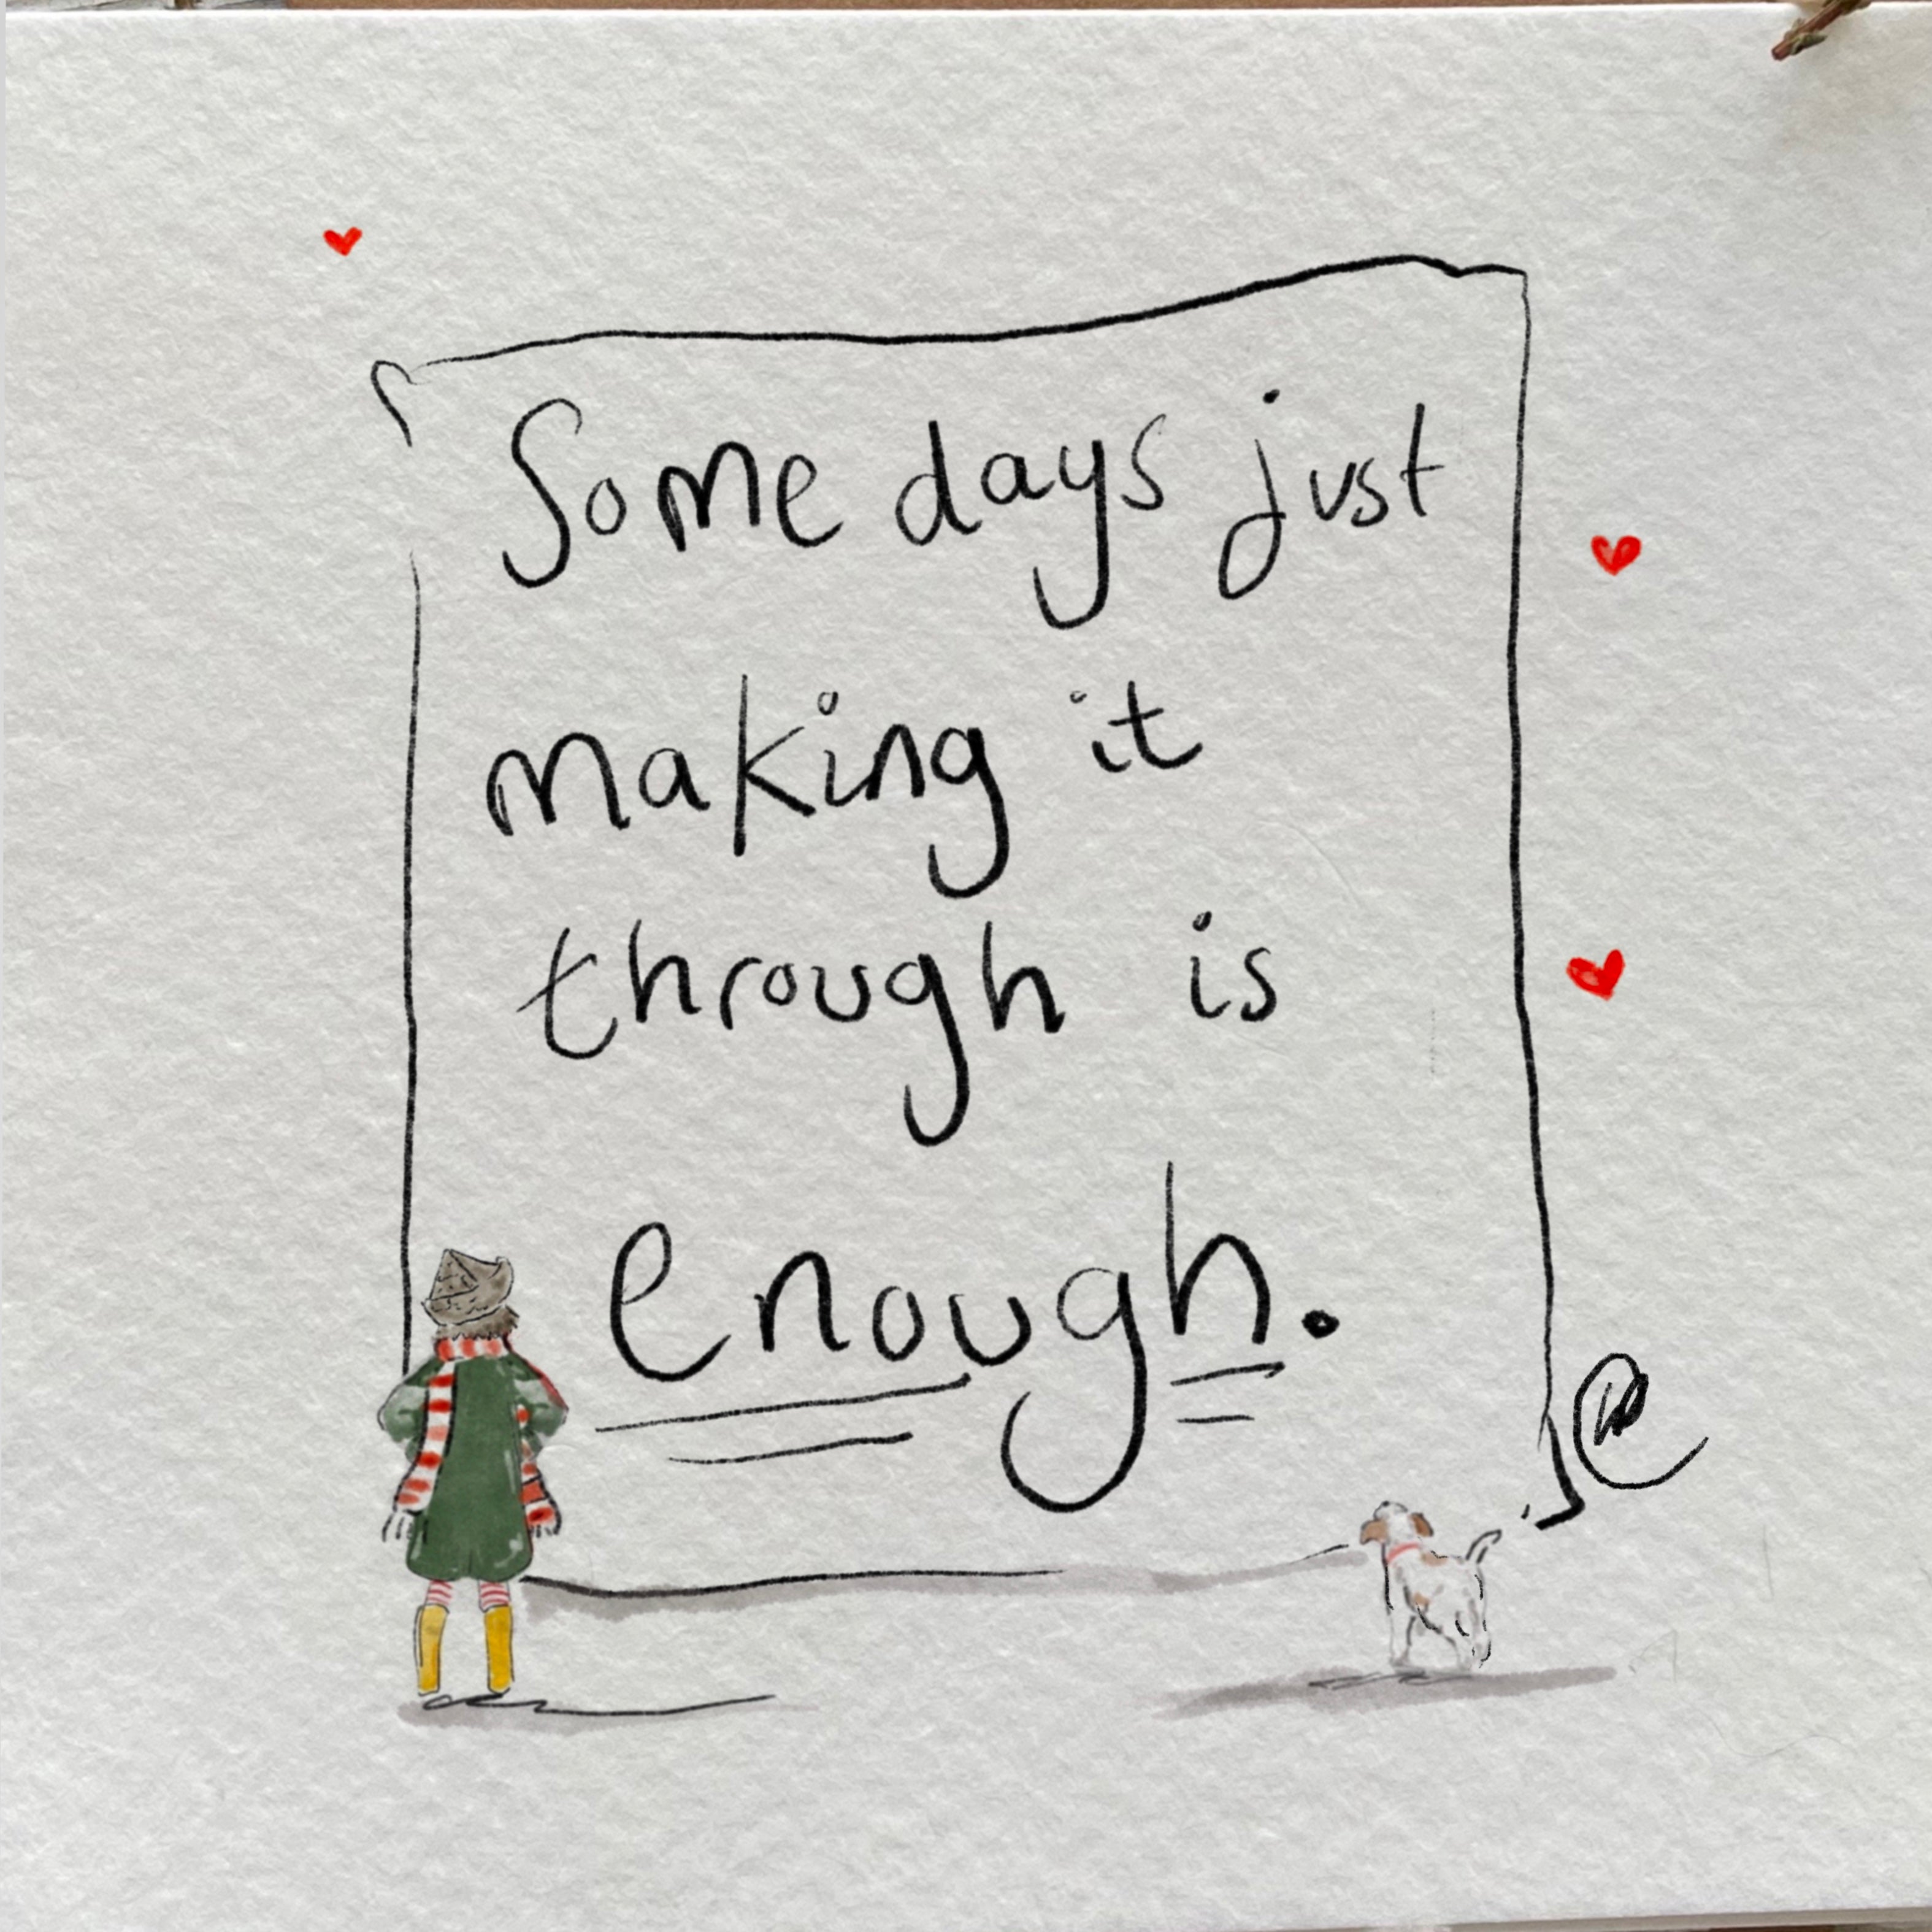 Some days just
making it
through is
enough.